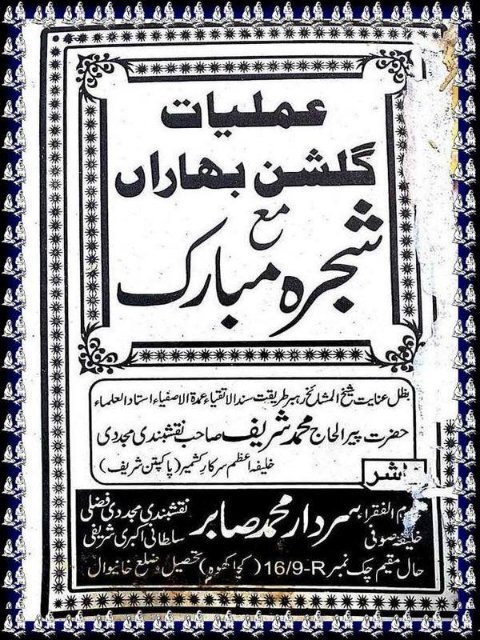 عملیات
گلشن بھاراں
مع
شجرہ مبارک
بظل عنایت شیخ المشائخ رہبر طریقت سند الاتقیاء عمدۃ الاصفیاء استاد العلماء
حضرت پیر الحاج محمد شریف صاحب نقشبندی مجددی
خلیفہ اعظم سرکار کشمیر (پاکپتن شریف)
ناشر
الفقراء سردار محمد صابر نقشبندی مجددی فضلی
خلیفہ صوفی سلطانی اکبری شریفی
حال مقیم چک نمبر 16/9-R (کچا کھوہ) تحصیل ضلع خانیوال